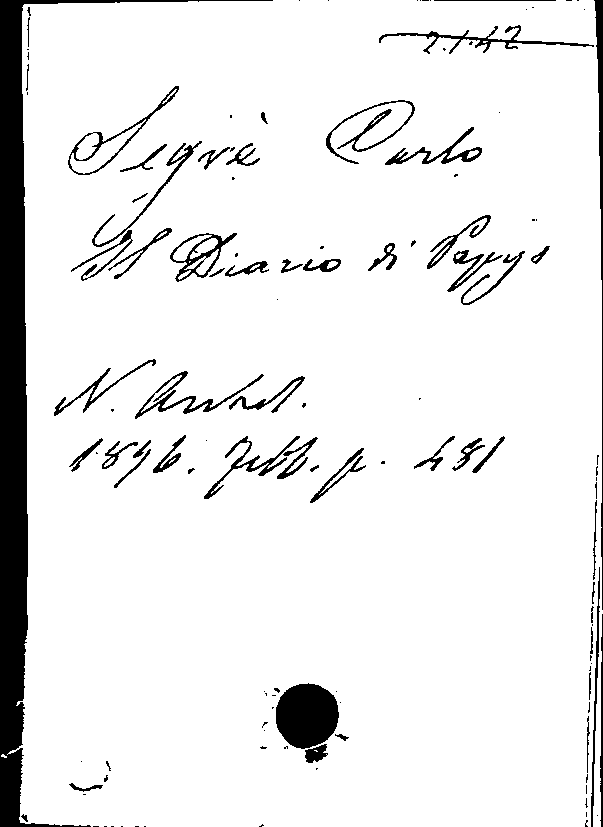 2.1.42
Segrè Carlo
Il Diario di Pepys
N. Antol.
1896. Febb. p. 481